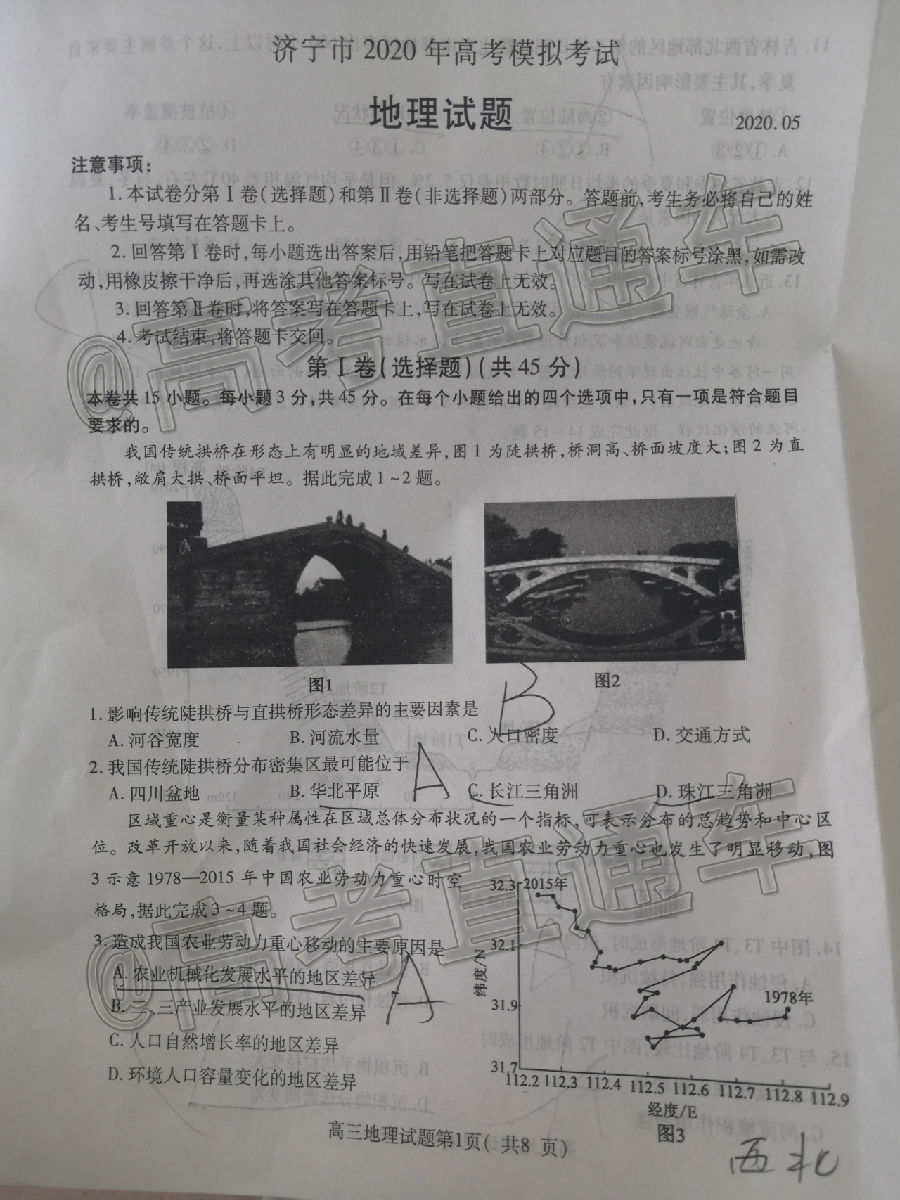 济宁市2020年高考模拟考试
地理试题
2020.05
注意事项:
1.本试卷分第Ⅰ卷(选择题)和第Ⅱ卷(非选择题)两部分。答题前,考生务必将自己的姓
名、考生号填写在答题卡上。
2.回答第Ⅰ卷时,每小题选出答案后,用铅笔把答题卡上对应题目的答案标号涂黑,如需改
动,用橡皮擦干净后,再选涂其他答案标号。写在试卷上无效。
3.回答第Ⅱ卷时,将答案写在答题卡上,写在试卷上无效。
4.考试结束,将答题卡交回。
第Ⅰ卷(选择题)(共45分)
本卷共15小题。每小题3分,共45分。在每个小题给出的四个选项中,只有一项是符合题目
要求的。
我国传统拱桥在形态上有明显的地域差异,图1为陡拱桥,桥洞高、桥面坡度大;图2为直
拱桥,敞肩大拱、桥面平坦。据此完成1~2题。
图1
图2
1.影响传统陡拱桥与直拱桥形态差异的主要因素是
B
A.河谷宽度 B.河流水量 C.人口密度 D.交通方式
2.我国传统陡拱桥分布密集区最可能位于
A
A.四川盆地 B.华北平原 C.长江三角洲 D.珠江三角洲
区域重心是衡量某种属性在区域总体分布状况的一个指标,可表示分布的总趋势和中心区
位。改革开放以来,随着我国社会经济的快速发展,我国农业劳动力重心也发生了明显移动,图
3示意1978—2015年中国农业劳动力重心时空
格局,据此完成3~4题。
3.造成我国农业劳动力重心移动的主要原因是
A.农业机械化发展水平的地区差异
A
B.二、三产业发展水平的地区差异
C.人口自然增长率的地区差异
D.环境人口容量变化的地区差异
32.3
2015年
32.1
纬度/N
31.9
1978年
31.7
112.2 112.3 112.4 112.5 112.6 112.7 112.8 112.9
经度/E
图3
高三地理试题第1页(共8页)
西北
@高考直通车
@高考直通车